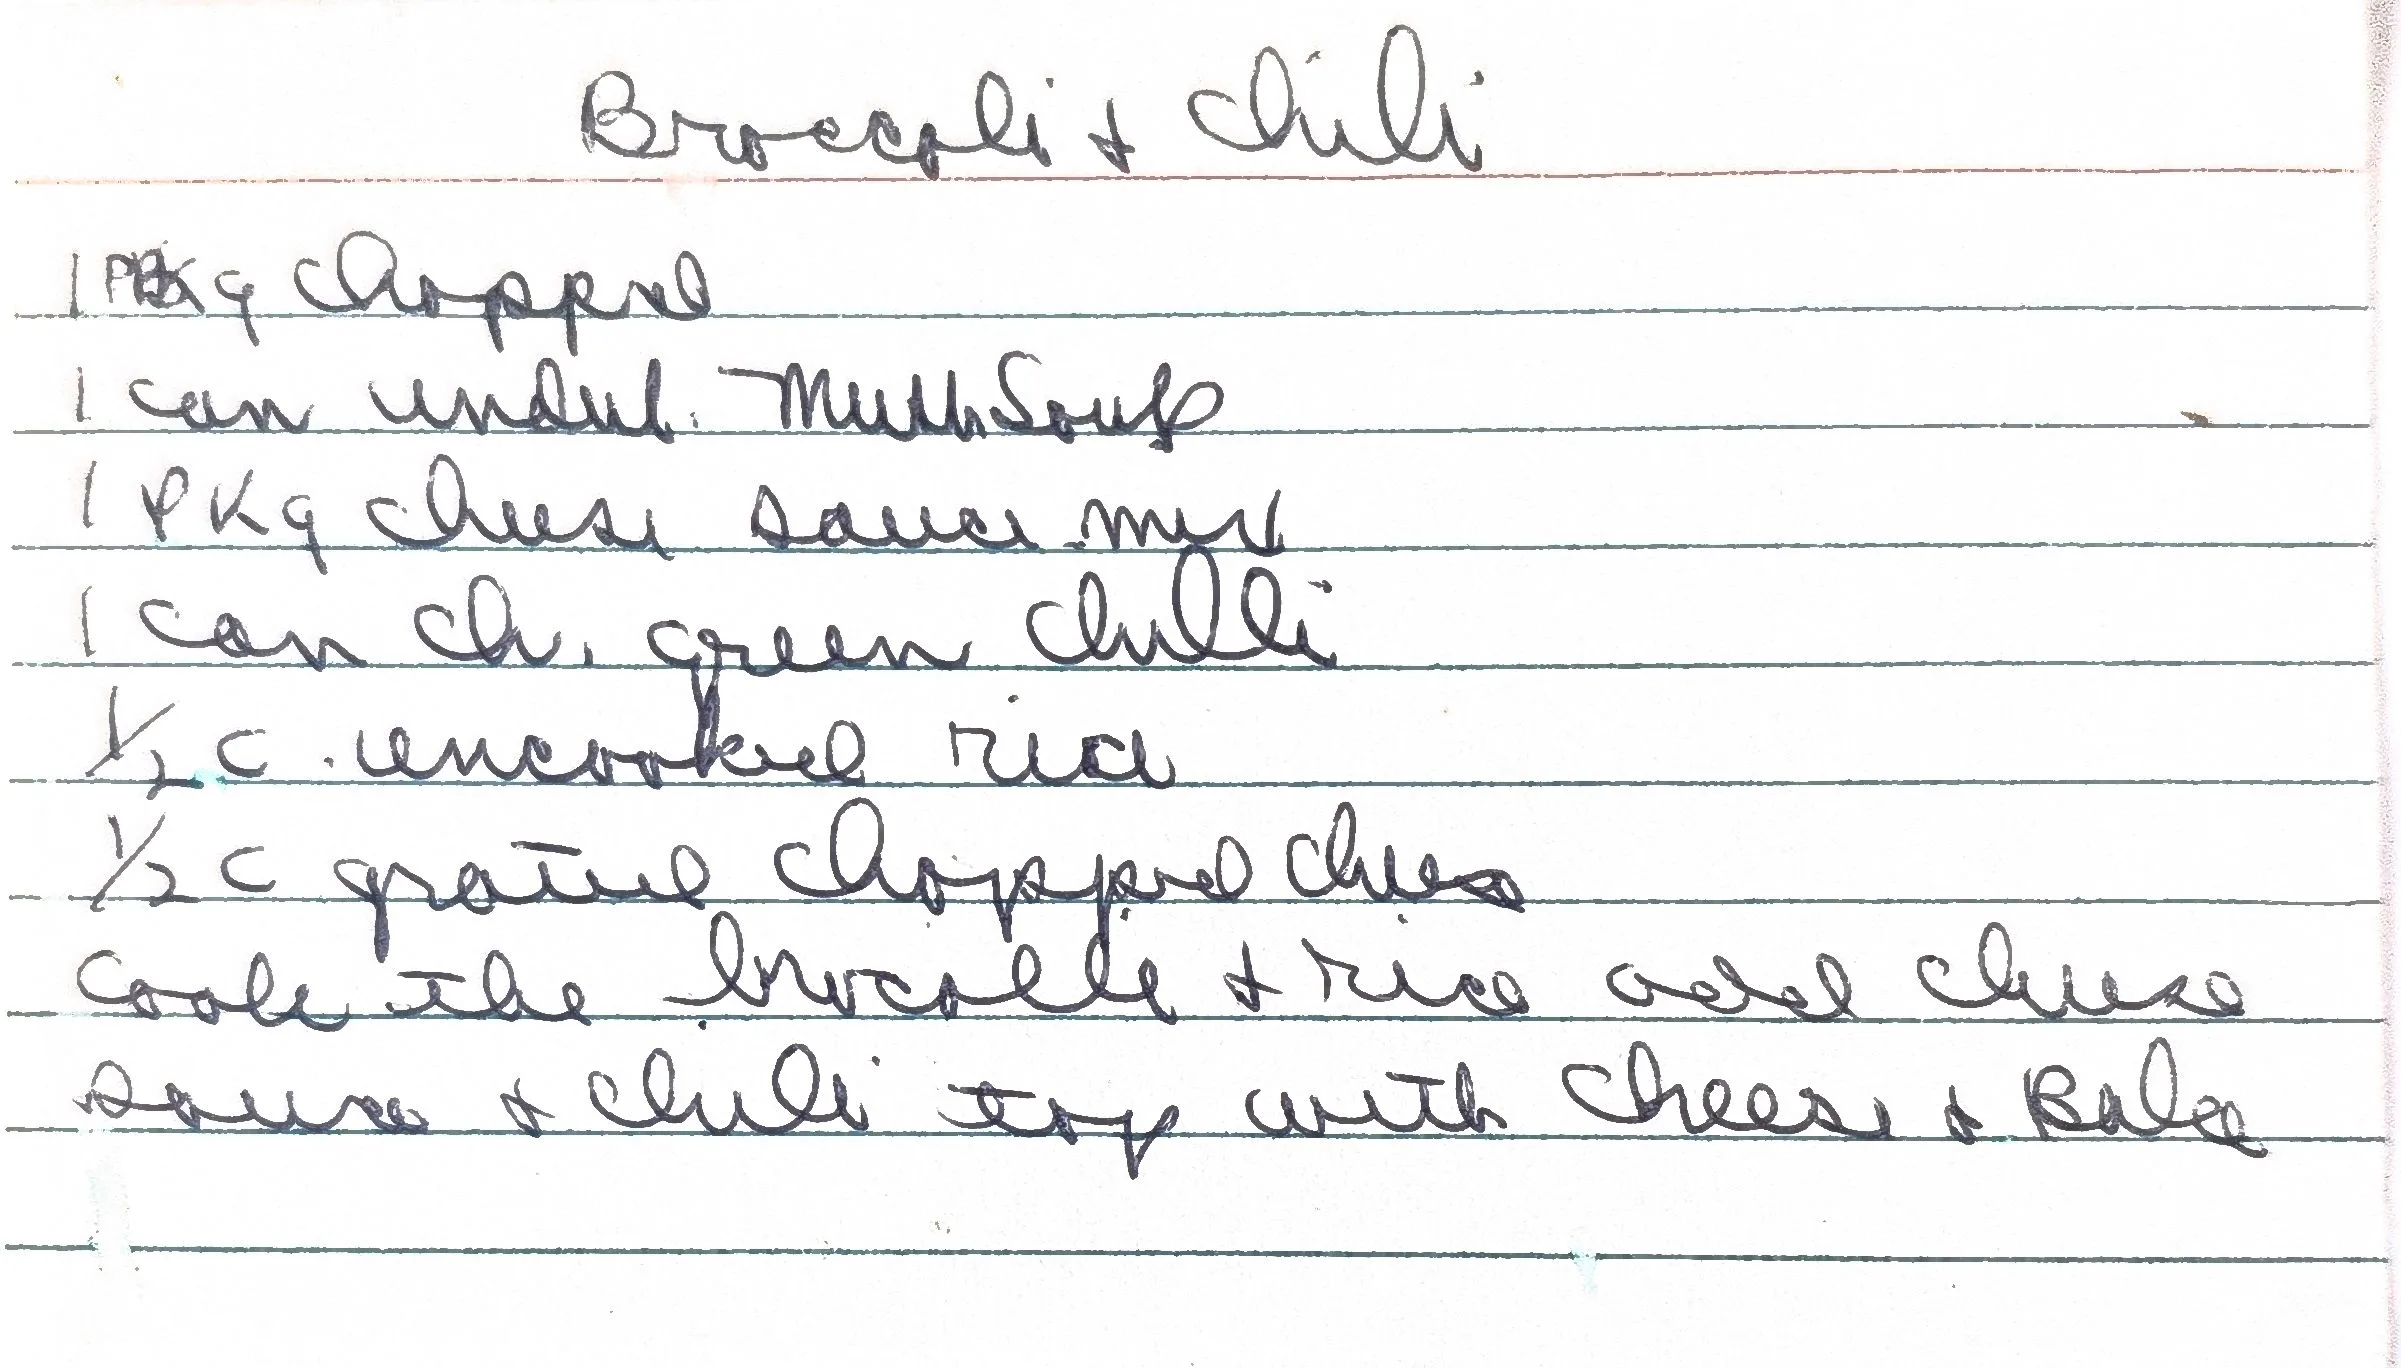 Broccoli + Chili
1 Pkg Chopped
1 can undil. Mush Soup
1 PKg cheese sauce mix
1 can ch. green chilli
1/2 c. uncooked rice
1/2 c grated chopped cheese
Cook the brocolli + rice add cheese
sauce + chili top with Cheese + Bake